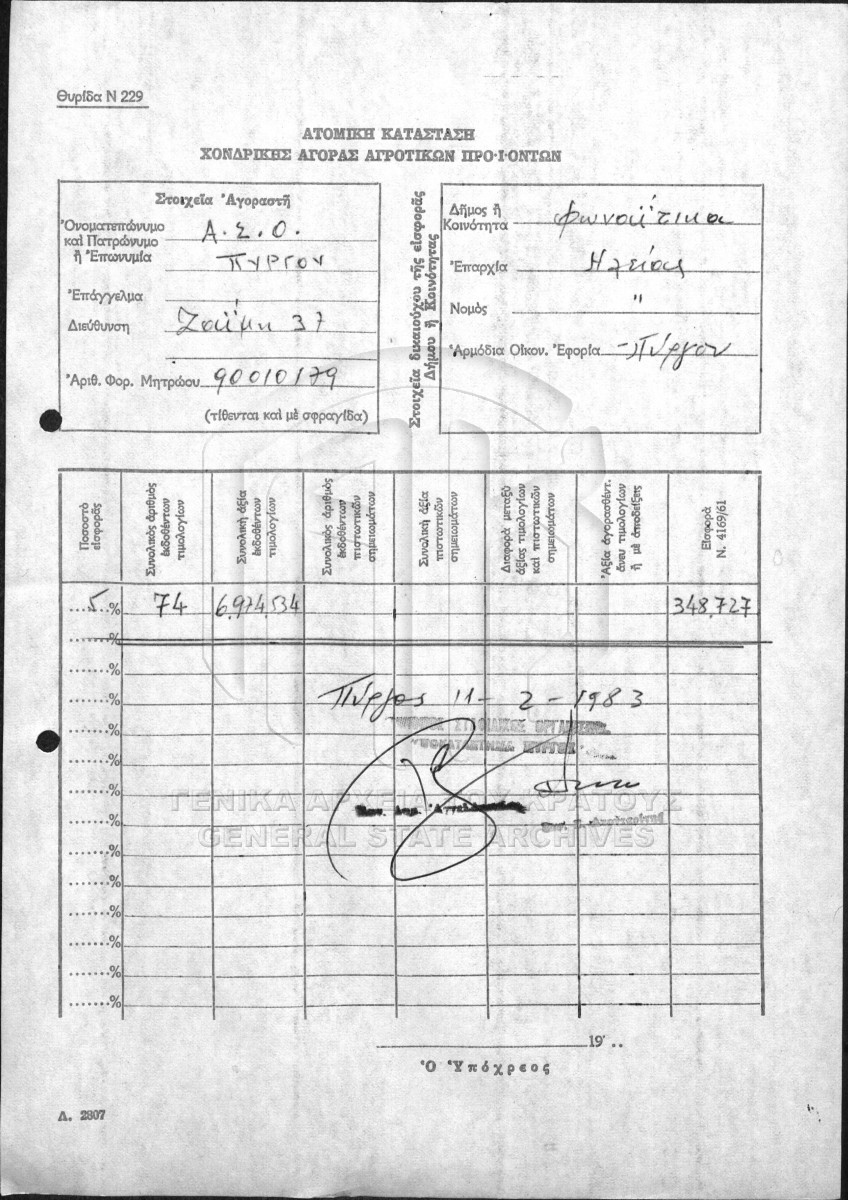 Θυρίδα Ν 229
ΑΤΟΜΙΚΗ ΚΑΤΑΣΤΑΣΗ
ΧΟΝΔΡΙΚΗΣ ΑΓΟΡΑΣ ΑΓΡΟΤΙΚΩΝ ΠΡΟ·Ι·ΟΝΤΩΝ
Στοιχεῖα Ἀγοραστῆ
Ὀνοματεπώνυμο Α.Σ.Ο.
καὶ Πατρώνυμο
ἢ Ἐπωνυμία ΠΥΡΓΟΥ
Ἐπάγγελμα
Διεύθυνση Ζαΐμη 37
Ἀριθ. Φορ. Μητρώου 90010179
(τίθενται καὶ μὲ σφραγίδα)
Στοιχεῖα δικαιούχου τῆς εἰσφορᾶς
Δήμου ἢ Κοινότητας
Δῆμος ἢ
Κοινότητα Φωναΐτικα
Ἐπαρχία Ηλείας
Νομὸς "
Ἁρμόδια Οἰκον. Ἐφορία Πύργου
Ποσοστὸ
εἰσφορᾶς
Συνολικὸς ἀριθμὸς
ἐκδοθέντων
τιμολογίων
Συνολικὴ ἀξία
ἐκδοθέντων
τιμολογίων
Συνολικὸς ἀριθμὸς
ἐκδοθέντων
πιστωτικῶν
σημειωμάτων
Συνολικὴ ἀξία
πιστωτικῶν
σημειωμάτων
Διαφορὰ μεταξὺ
ἀξίας τιμολογίων
καὶ πιστωτικῶν
σημειωμάτων
Ἀξία ἀγορασθέντ.
ἄνευ τιμολογίων
ἢ μὲ ἀποδείξεις
Εἰσφορὰ
Ν. 4169/61
5 % 74 6.974.534 348.727
......%
......%
......% Πύργος 11 - 2 - 1983
......%
......%
......%
......%
......%
......%
......%
......%
......%
......%
ΓΕΝΙΚΑ ΑΡΧΕΙΑ ΤΟΥ ΚΡΑΤΟΥΣ
GENERAL STATE ARCHIVES
19 ..
Ὁ Ὑπόχρεος
Δ. 2807